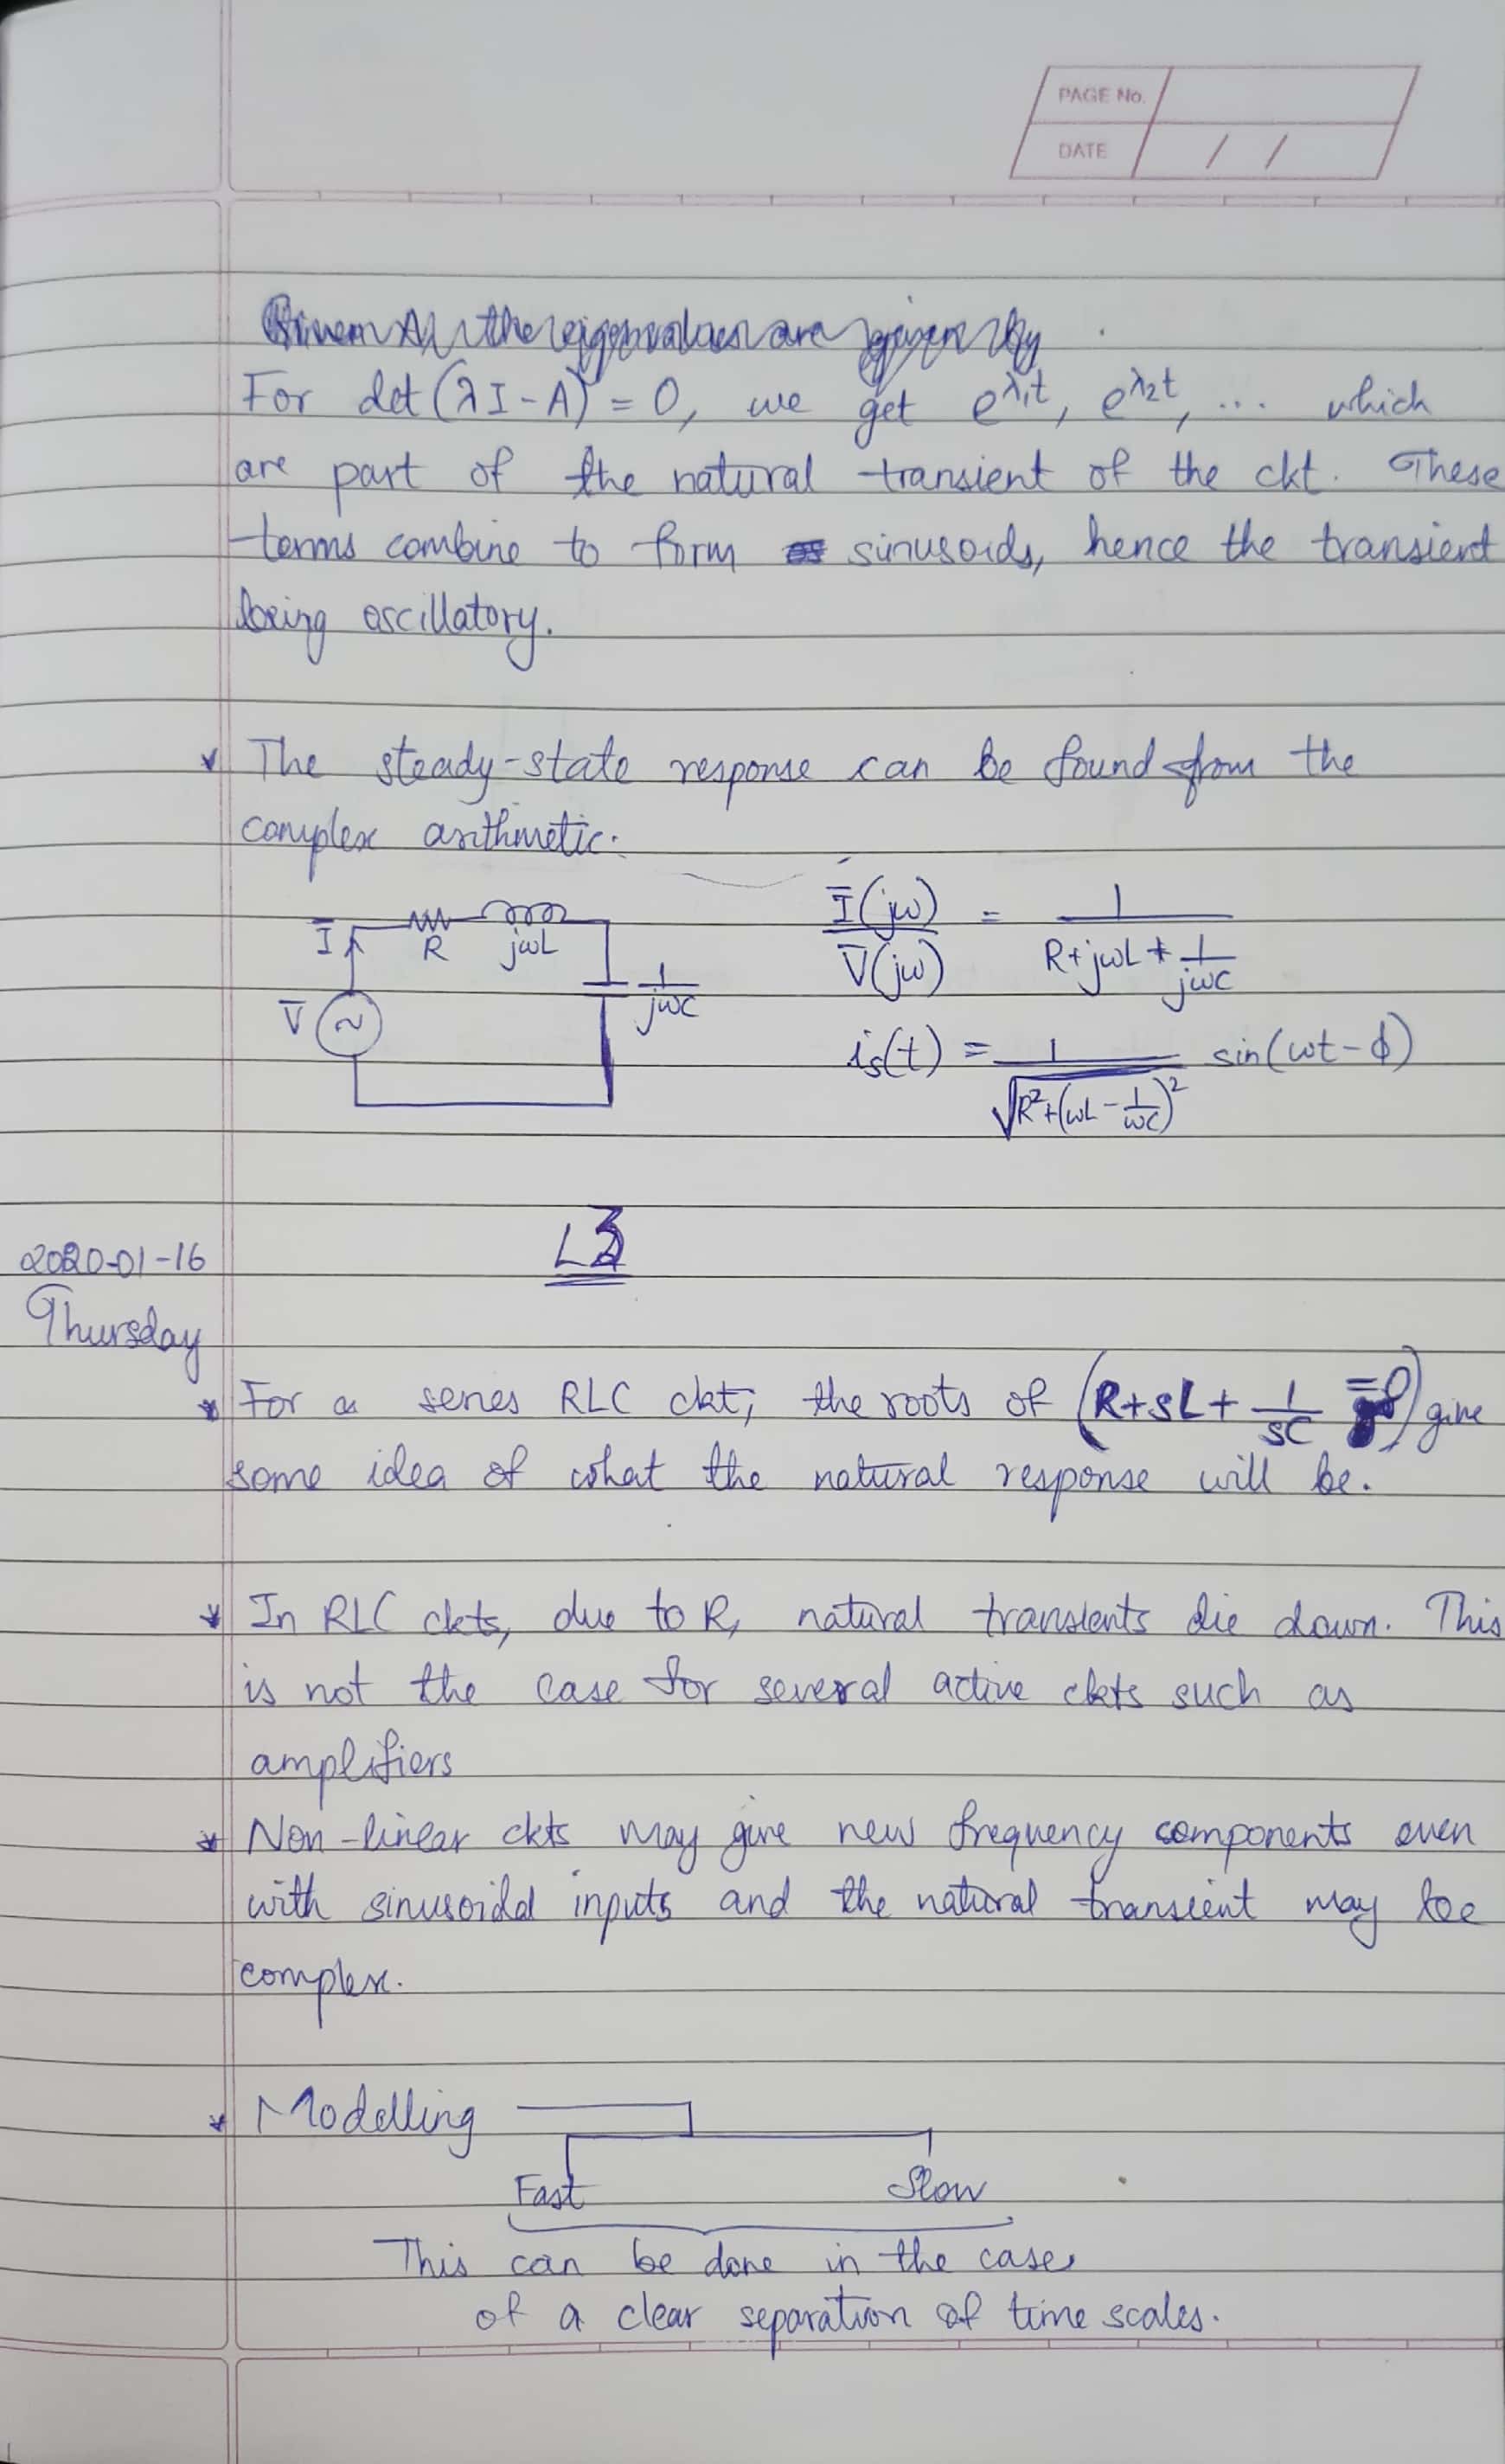 PAGE No.
DATE / /
For det(λI-A) = 0, we get e^λ₁t, e^λ₂t, ... which
are part of the natural transient of the ckt. These
terms combine to form sinusoids, hence the transient
being oscillatory.
* The steady-state response can be found from the
complex arithmetic.
Ī R jωL
V̄ ~ 1/jωC
Ī(jω)/V̄(jω) = 1/(R+jωL+1/jωC)
is(t) = 1/√(R²+(ωL-1/ωC)²) sin(ωt-φ)
L3
2020-01-16
Thursday
* For a series RLC ckt, the roots of (R+sL+1/sC =0) give
some idea of what the natural response will be.
* In RLC ckts, due to R, natural transients die down. This
is not the case for several active ckts such as
amplifiers
* Non-linear ckts may give new frequency components even
with sinusoidal inputs and the natural transient may be
complex.
* Modelling
Fast Slow
This can be done in the case
of a clear separation of time scales.